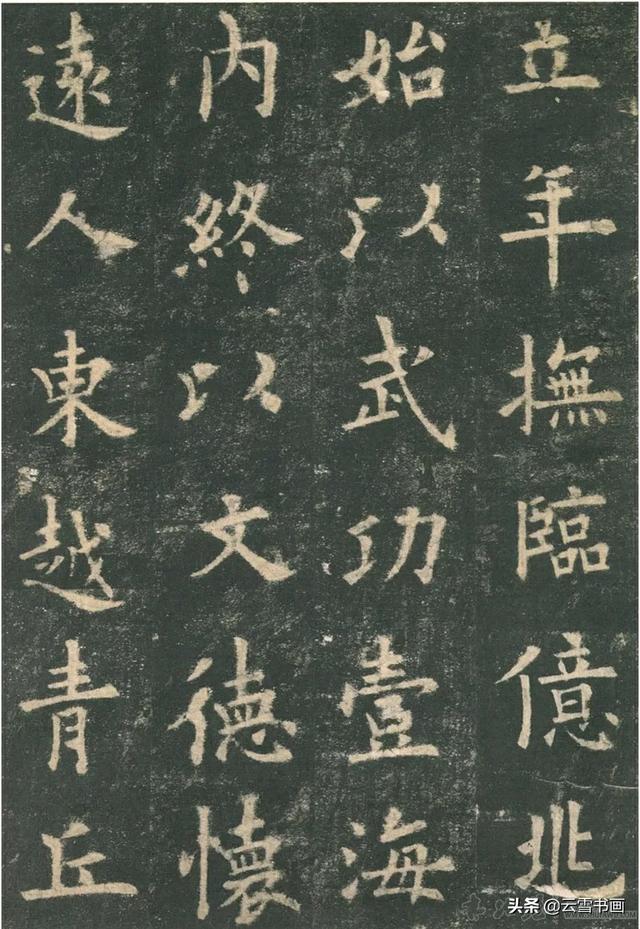 立年撫臨億兆
始以武功壹海
內終以文德懷
遠人東越青丘
头条 @云雪书画